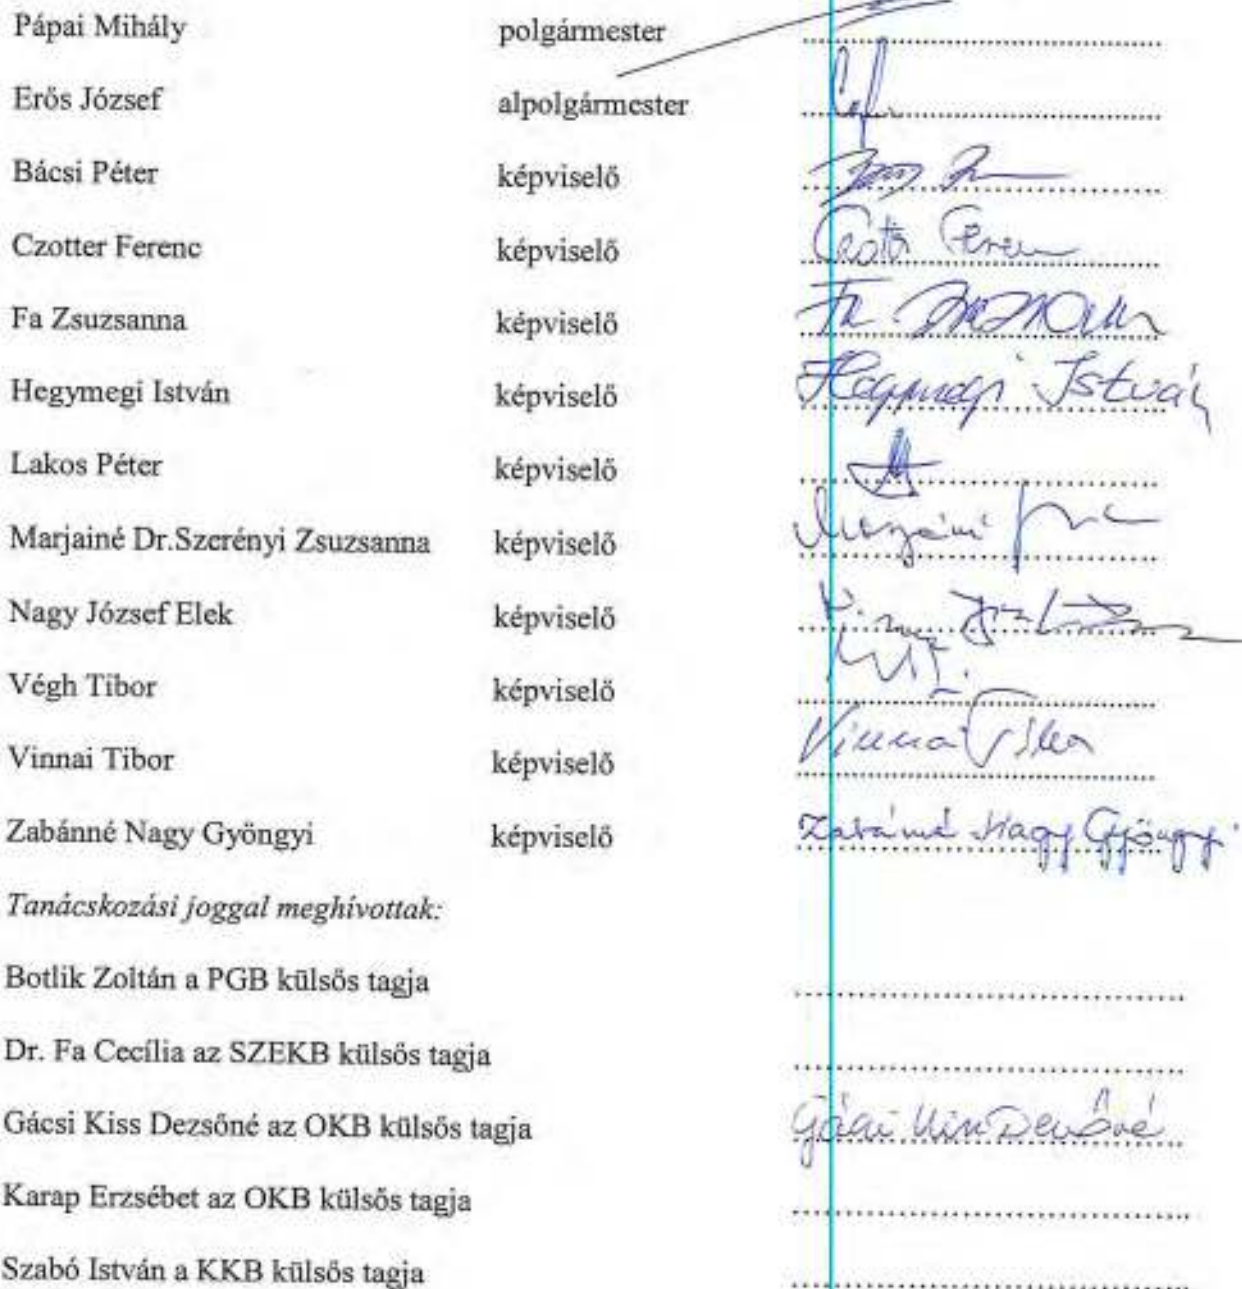 Pápai Mihály polgármester
Erős József alpolgármester
Bácsi Péter képviselő
Czotter Ferenc képviselő Ferenc
Fa Zsuzsanna képviselő Fa
Hegymegi István képviselő Hegymegi István
Lakos Péter képviselő
Marjainé Dr.Szerényi Zsuzsanna képviselő
Nagy József Elek képviselő
Végh Tibor képviselő
Vinnai Tibor képviselő Vinnai Tibor
Zabánné Nagy Gyöngyi képviselő Zabánné Nagy Gyöngyi
Tanácskozási joggal meghívottak:
Botlik Zoltán a PGB külsős tagja
Dr. Fa Cecília az SZEKB külsős tagja
Gácsi Kiss Dezsőné az OKB külsős tagja Gácsi Kiss Dezsőné
Karap Erzsébet az OKB külsős tagja
Szabó István a KKB külsős tagja